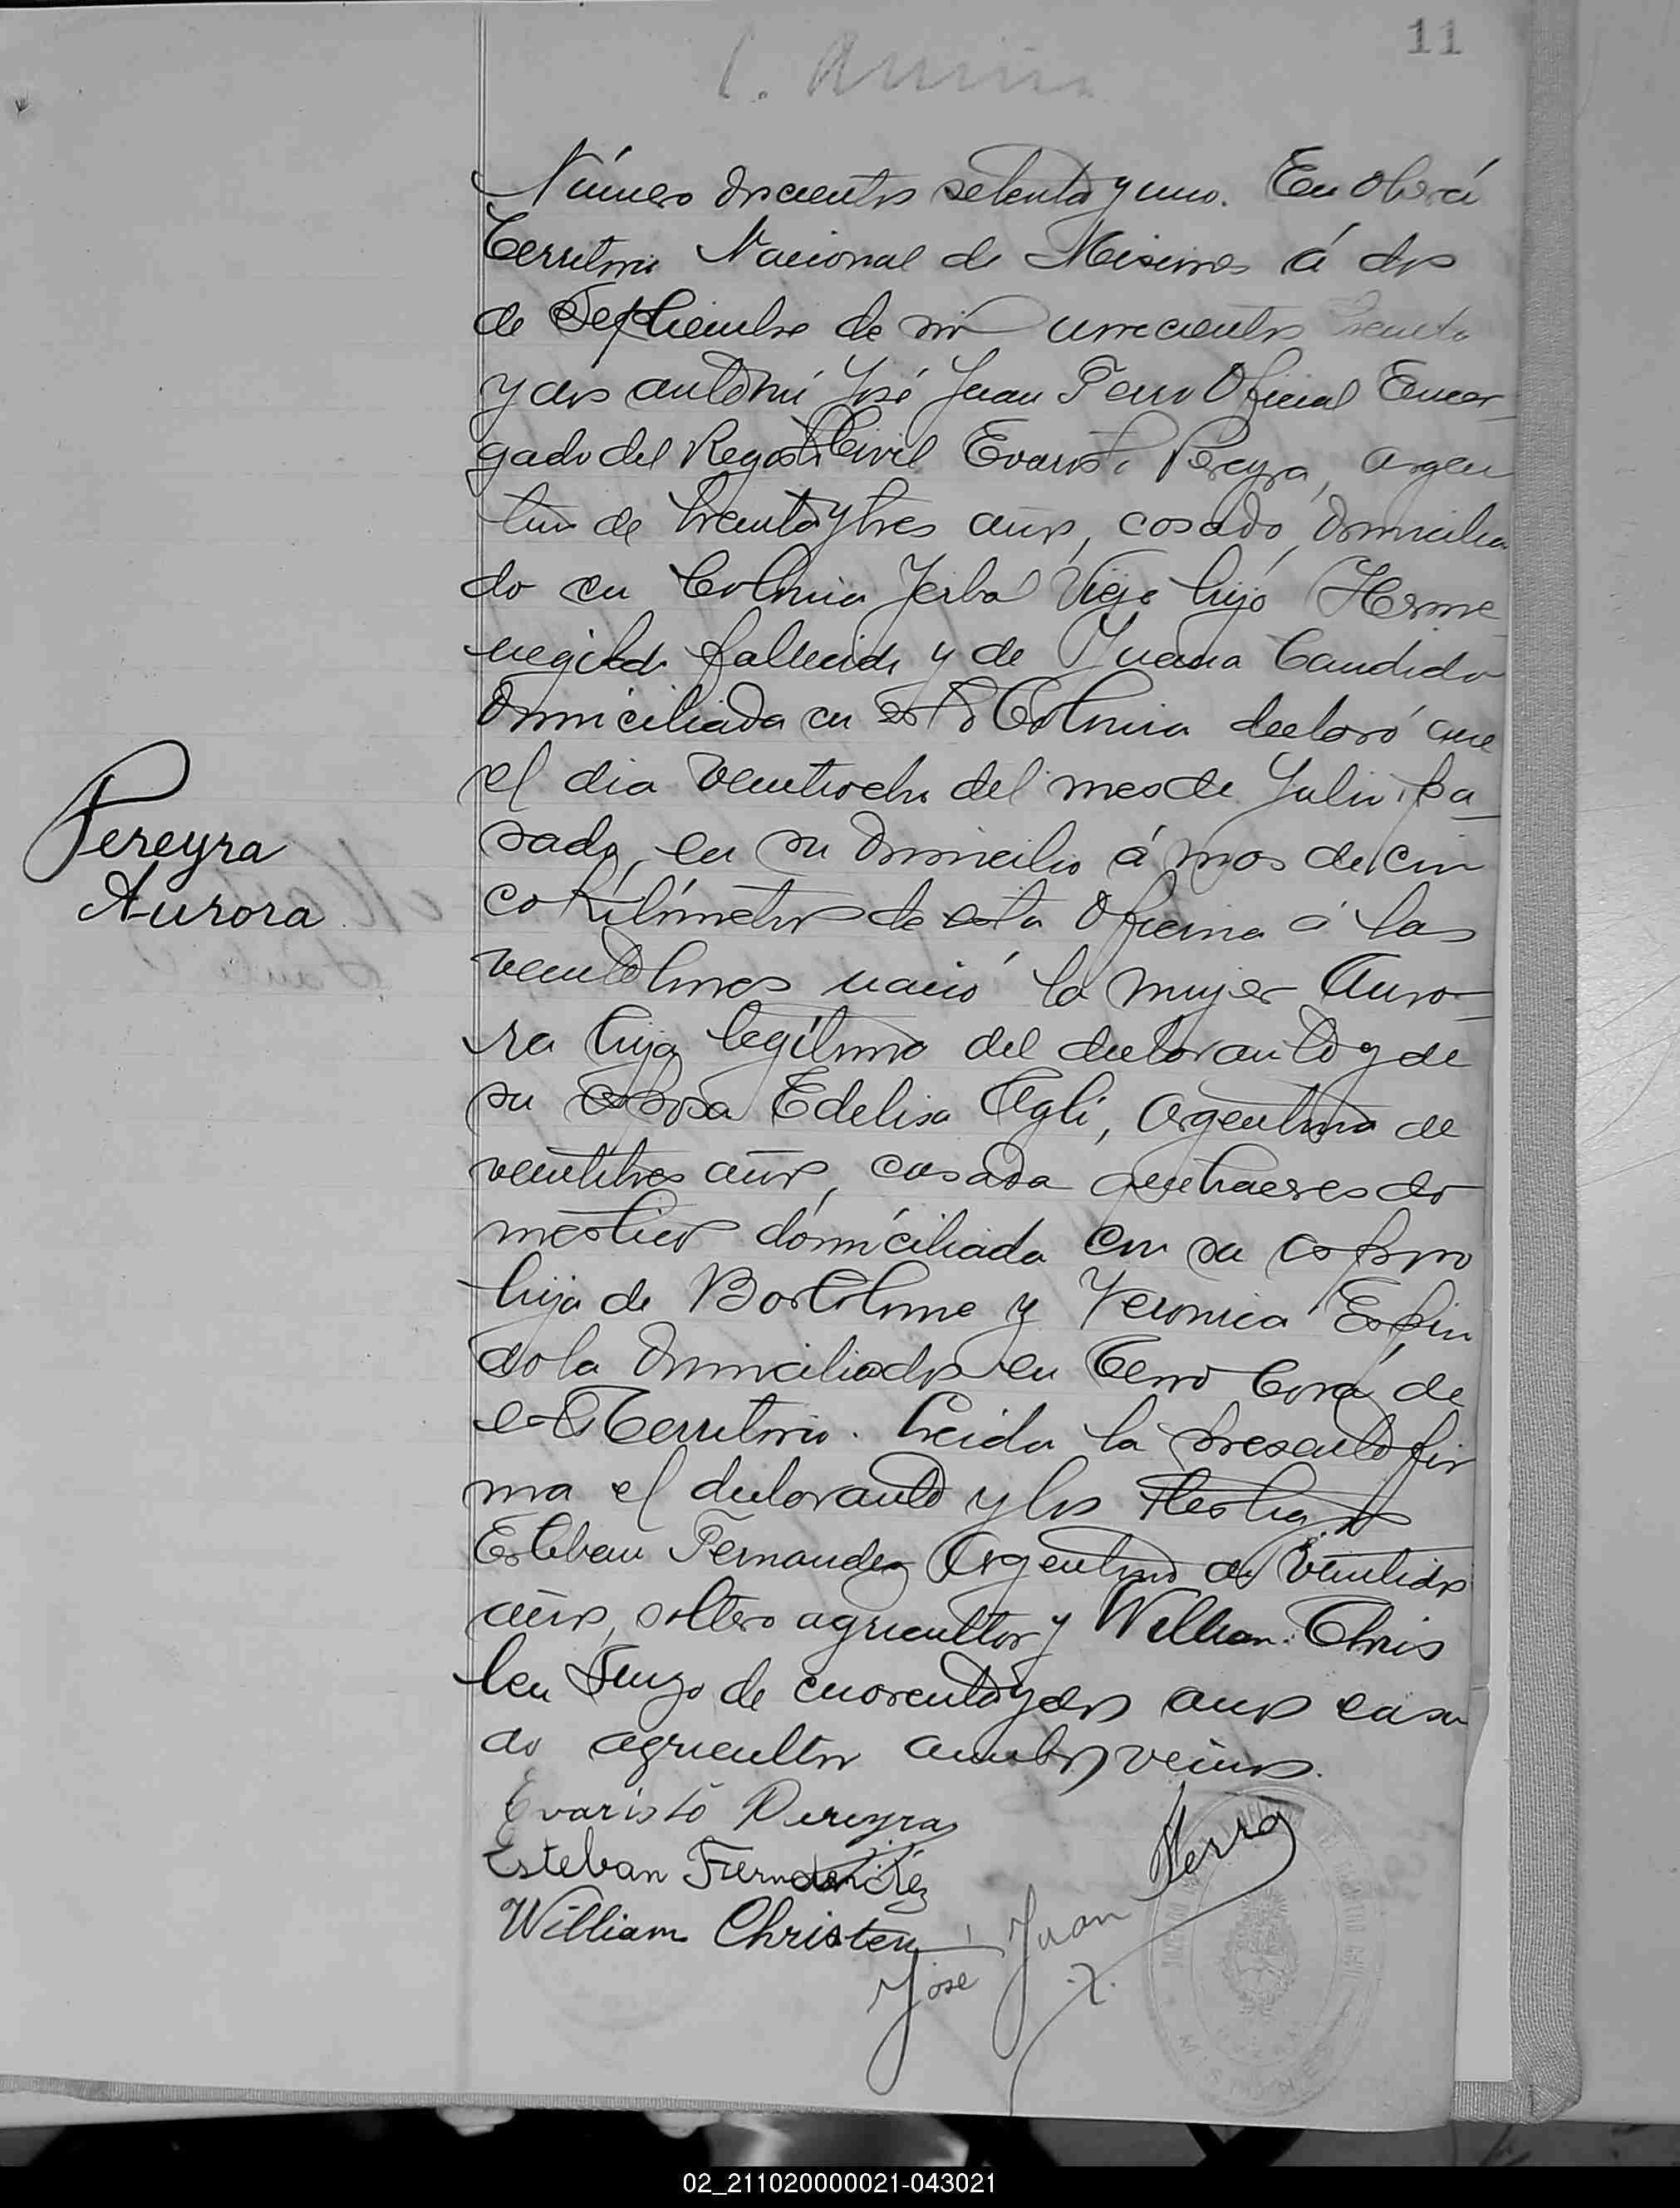 11
Número doscientos setenta y uno. En Oberá
Territorio Nacional de Misiones á dos
de Septiembre de mil novecientos treinta
y dos ante mí José Juan Ferro Oficial Encar-
gado del Registro Civil Evaristo Pereyra, argen
tino de treinta y tres años, casado, domicilia
do en Colonia Yerbal Viejo hijo Herme
negildo fallecido y de Juana Candida
domiciliada en esta Colonia declaró que
el dia veintiocho del mes de Julio pa-
sado, en su domicilio á mas de cin
co kilómetros de esta Oficina á las
veintitres nació la mujer Auro-
ra hija legítima del declarante y de
su esposa Edelisa Agli, Argentina de
veintitres años, casada quehaceres do
mesticos domiciliada con su esposo
hija de Bortolome y Veronica Espin
dola domiciliados en Cerro Corá de
este Territorio. Leida la presente fir
ma el declarante y los testigos
Esteban Fernandez Argentino de veintidos
años, soltero agricultor y William Chris
ten Suizo de cuarenta y dos años casa
do agricultor ambos vecinos.
Pereyra
Aurora
Evaristo Pereyra
Esteban Fernandez
William Christen
José Juan Ferro
MISIONES
02_211020000021-043021